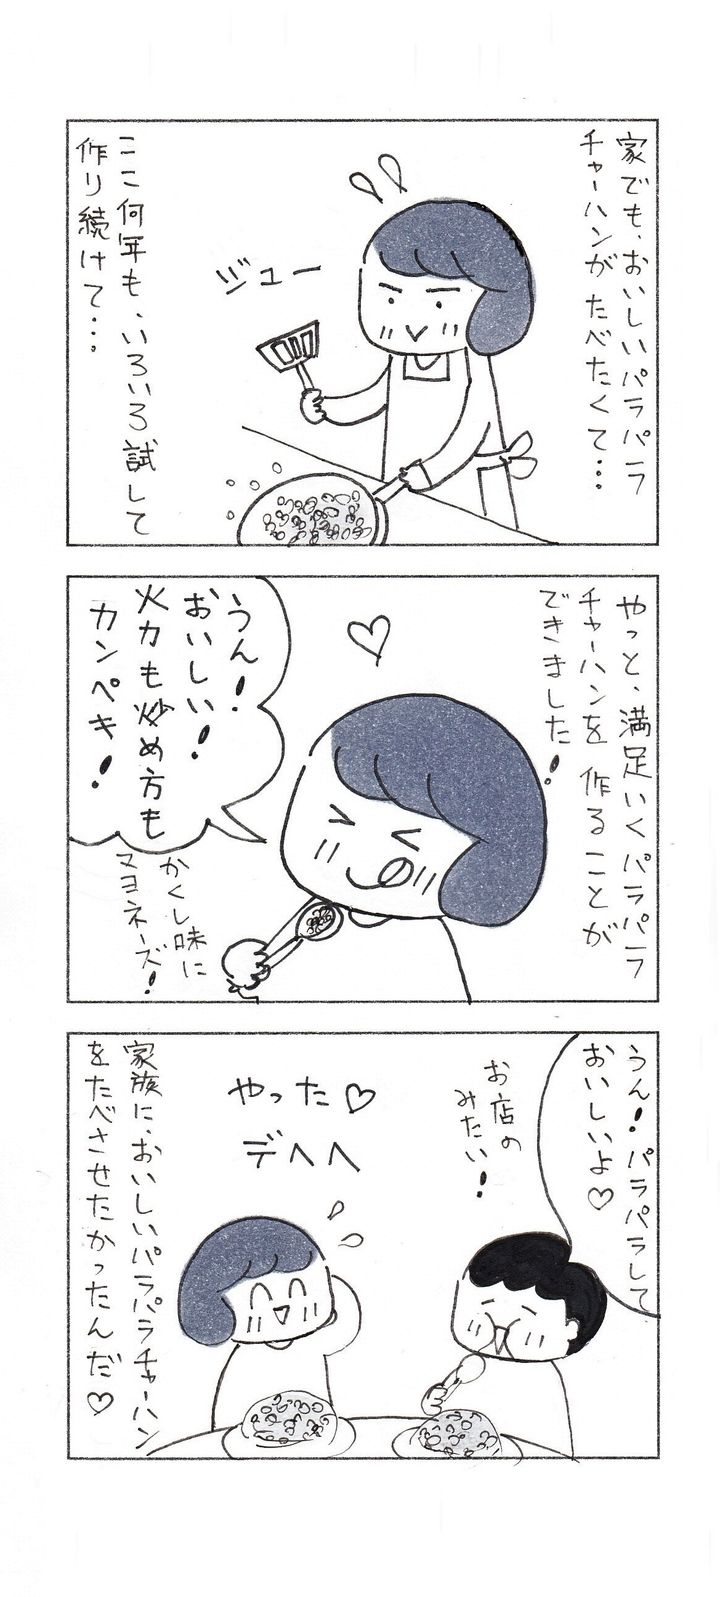 家でも、おいしいパラパラ
チャーハンが たべたくて…
ジュー
ここ何年も、いろいろ試して
作り続けて…
やっと、満足いくパラパラ
チャーハンを 作ることが
できました!
うん!
おいしい!
火力も炒め方も
カンペキ!
かくし味に
マヨネーズ!
うん!パラパラして
おいしいよ♡
お店の
みたい!
やった♡
デヘヘ
家族に、おいしいパラパラチャーハン
をたべさせたかったんだ♡